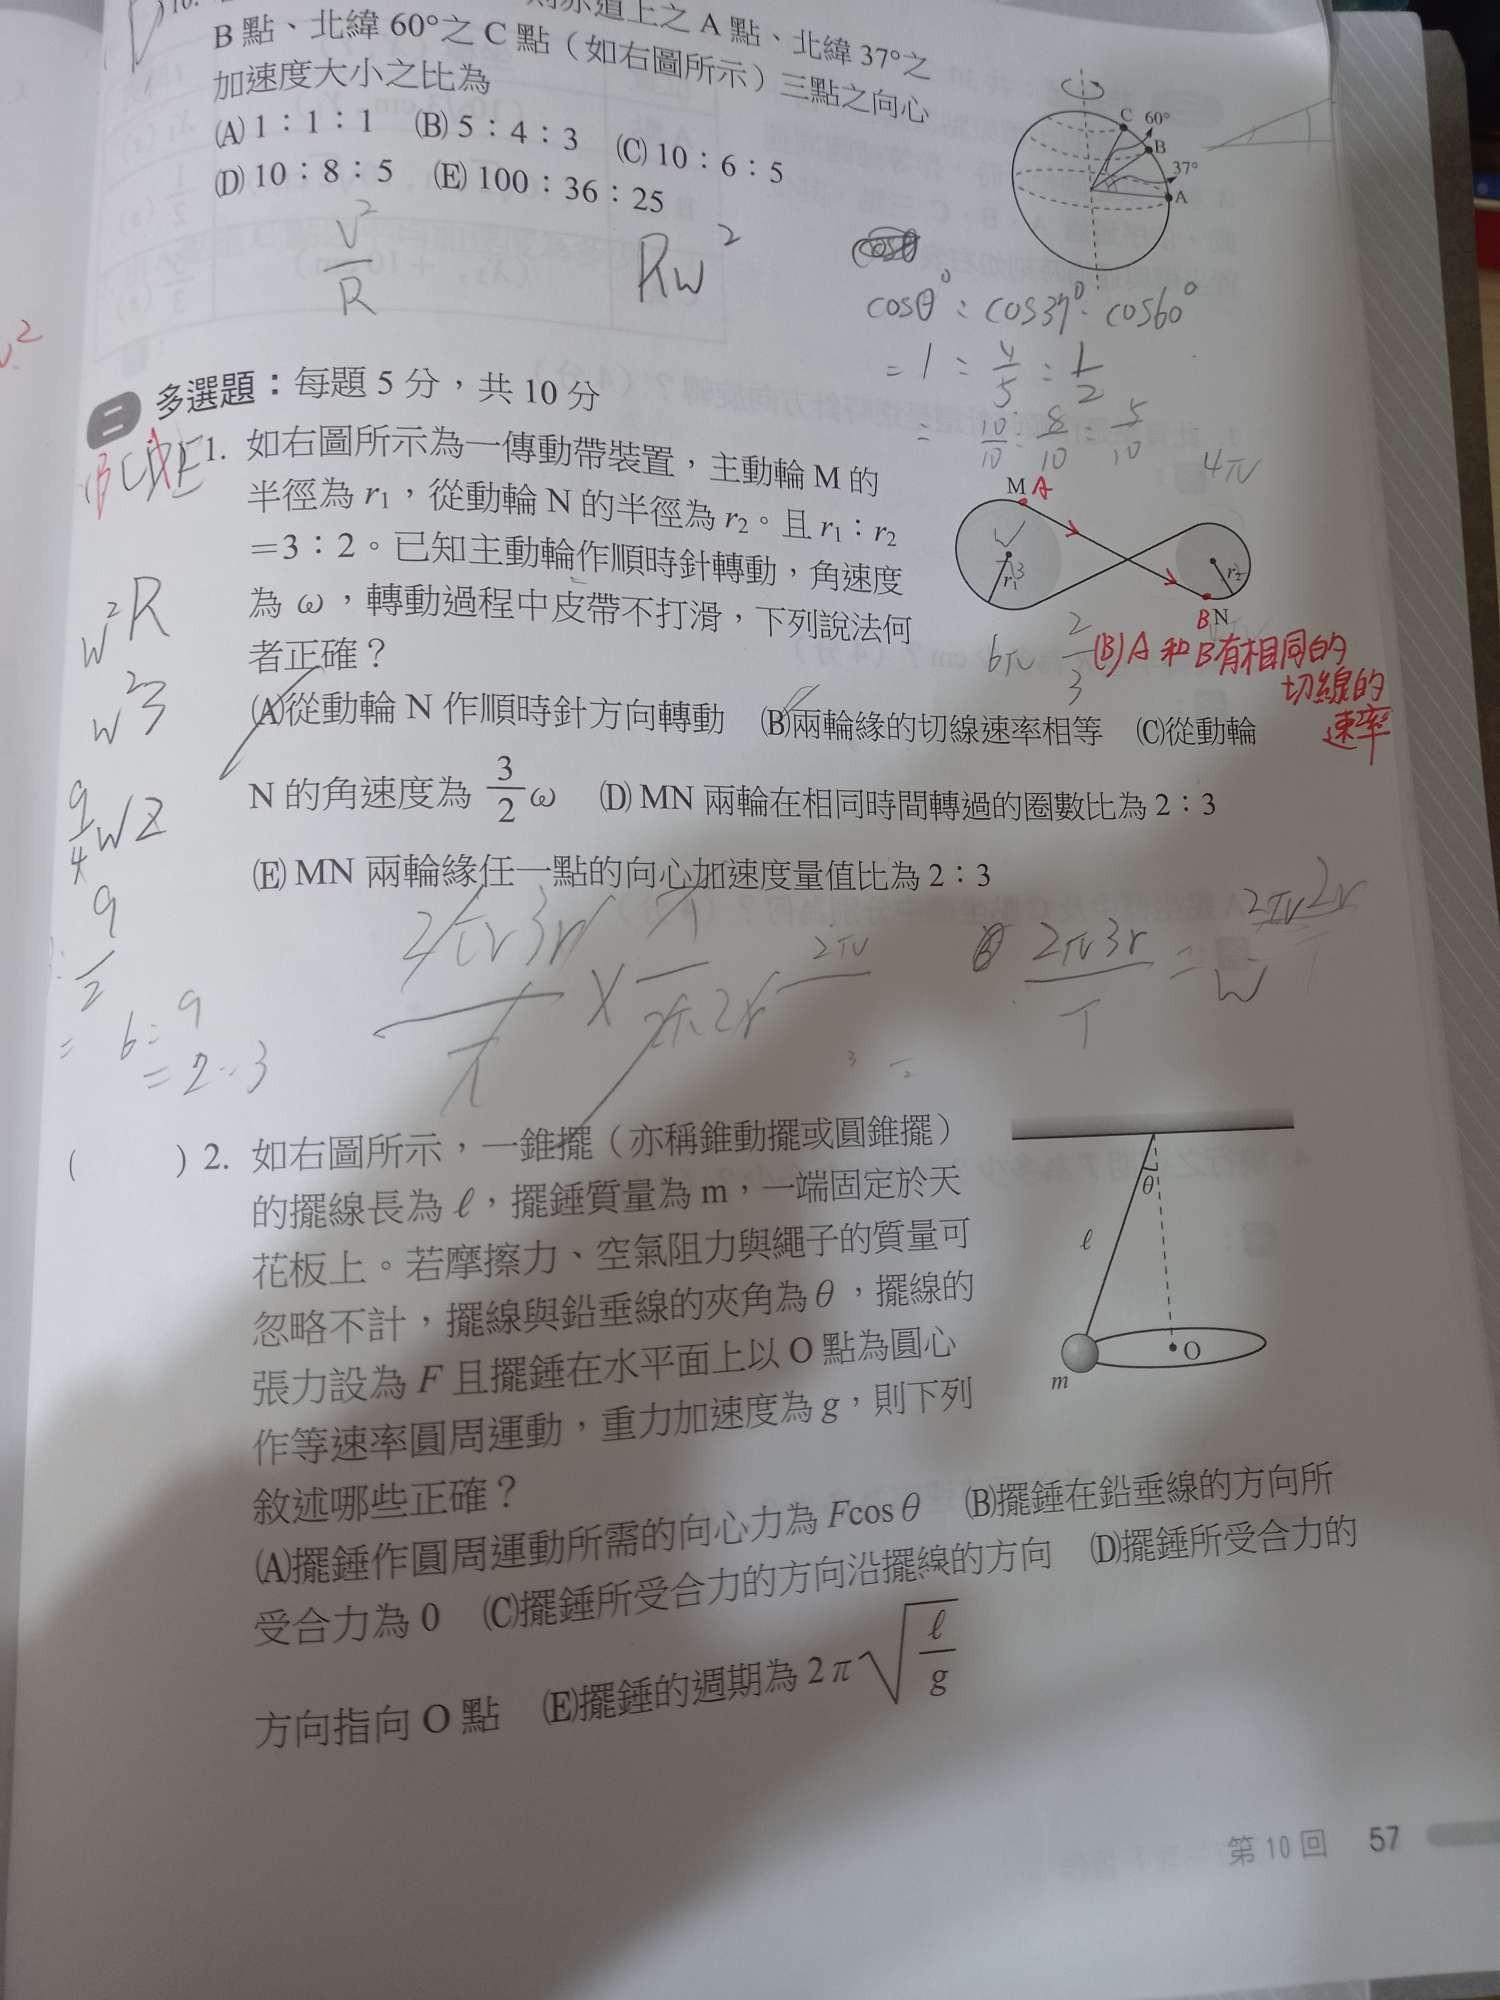 10.
則赤道上之 A 點、北緯 37°之
B 點、北緯 60°之 C 點（如右圖所示）三點之向心
加速度大小之比為
(A) 1：1：1 (B) 5：4：3 (C) 10：6：5
(D) 10：8：5 (E) 100：36：25
C 60°
B
37°
A
V²
R
Rw²
cosθ° : cos37° : cos60°
= 1 : 4/5 : 1/2
= 10/10 : 8/10 : 5/10
二 多選題：每題 5 分，共 10 分
BCDE
1. 如右圖所示為一傳動帶裝置，主動輪 M 的
半徑為 r₁，從動輪 N 的半徑為 r₂。且 r₁：r₂
＝3：2。已知主動輪作順時針轉動，角速度
為 ω，轉動過程中皮帶不打滑，下列說法何
者正確？
(A)從動輪 N 作順時針方向轉動 (B)兩輪緣的切線速率相等 (C)從動輪
N 的角速度為 3/2 ω (D) MN 兩輪在相同時間轉過的圈數比為 2：3
(E) MN 兩輪緣任一點的向心加速度量值比為 2：3
M A
4π
r₁
3
r₂
B N
6π
2/3
(B) A 和 B 有相同的
切線的
速率
w²R
w²3
9/4 w2
9/2
= 6 : 9
= 2 : 3
2π3r
T
( ) 2. 如右圖所示，一錐擺（亦稱錐動擺或圓錐擺）
的擺線長為 ℓ，擺錘質量為 m，一端固定於天
花板上。若摩擦力、空氣阻力與繩子的質量可
忽略不計，擺線與鉛垂線的夾角為 θ，擺線的
張力設為 F 且擺錘在水平面上以 O 點為圓心
作等速率圓周運動，重力加速度為 g，則下列
敘述哪些正確？
(A)擺錘作圓周運動所需的向心力為 Fcos θ (B)擺錘在鉛垂線的方向所
受合力為 0 (C)擺錘所受合力的方向沿擺線的方向 (D)擺錘所受合力的
方向指向 O 點 (E)擺錘的週期為 2π√(ℓ/g)
θ
ℓ
O
m
第 10 回 57